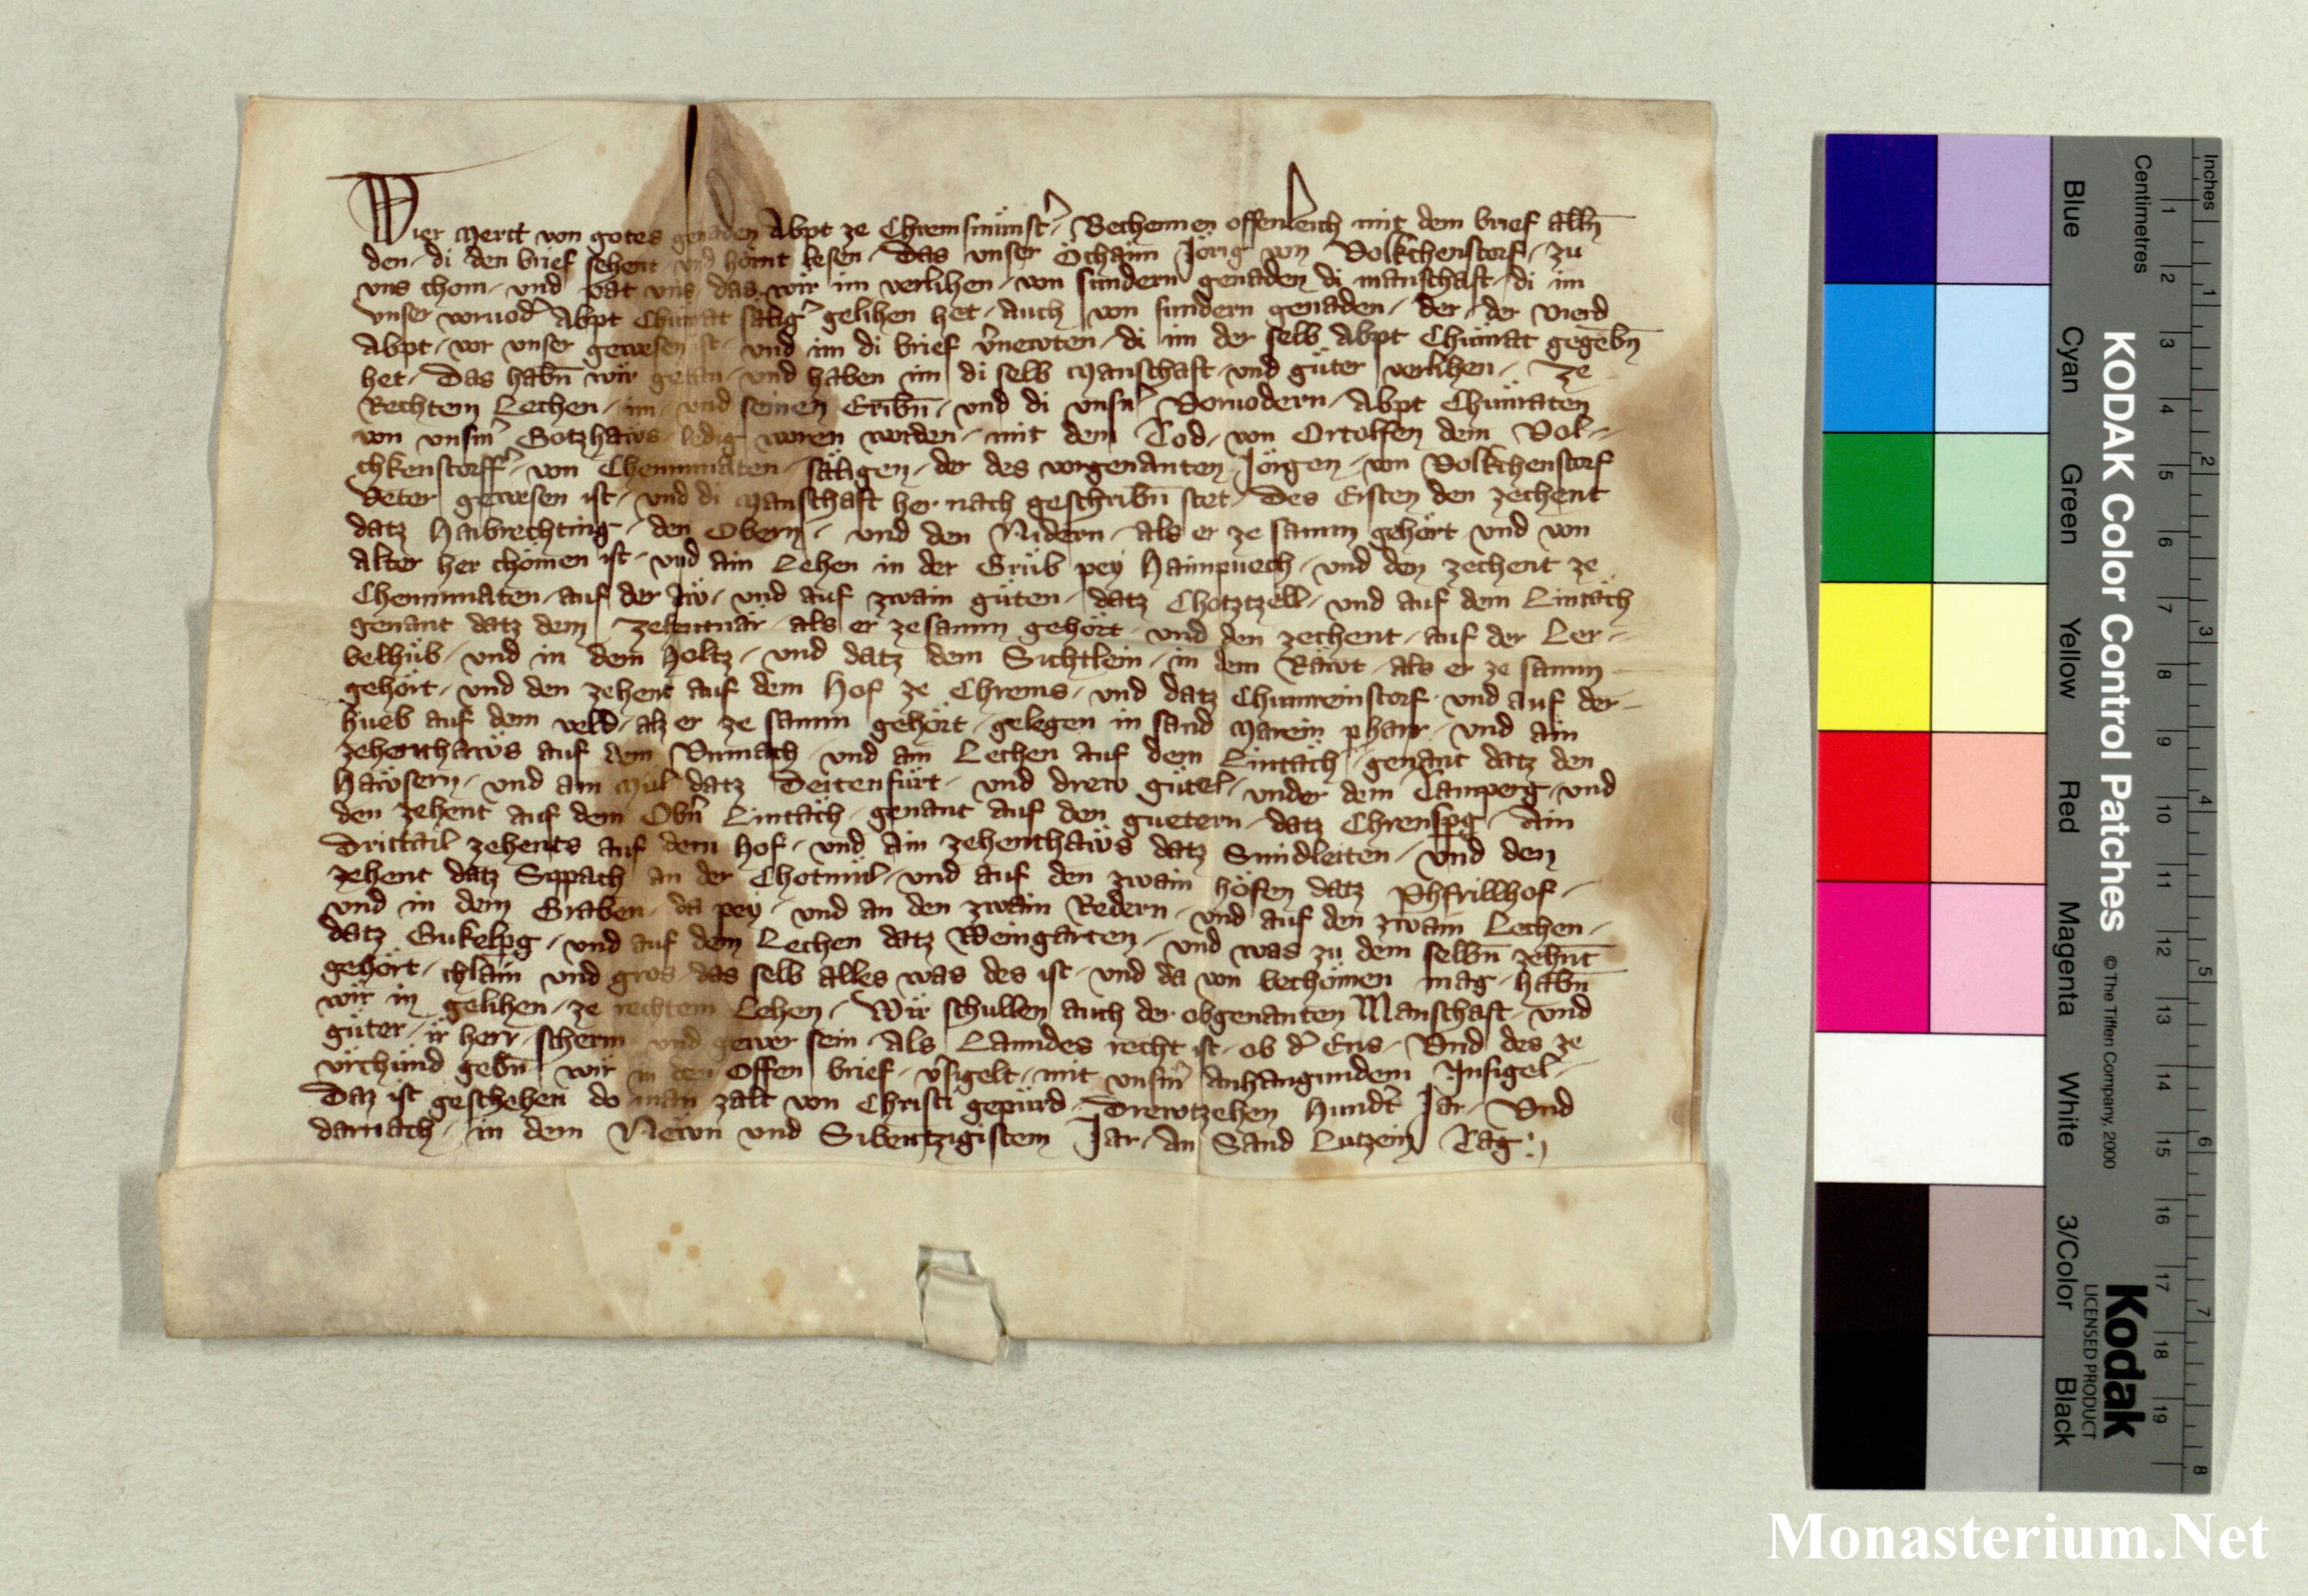 Wier Mertt von gotes genaden Abpt ze Chremsmünst̉ Bechennen offenleich mit dem brief alln̄
den di den brief sehent und hörnt lesen Das unser Öchaim Jörig von Volkchenstorf zu
uns chom und pat uns das wir im verlihen von sundern genaden di manschaft di im
Unser voruod̉ Abpt Chunrat sälig̉ gelihen het auch von sundern genaden der der vierd
Abpt vor unser gewesen ist und im di brief v̉newten di im der selb Abpt Chunrat gegebn̄
het Das habn̄ wir getan und haben im di selb Manschaft und güter verlihen Ze
Rechtem Lechen im und seinen Eribn̄ und di unsn̉ Voruodern Abpt Chunraten
von unsm̉ Gotzhaws ledig woren worden mit dem Tod von Ortolffen dem Vol=
chkenstorff̉ von Chemmnaten säligen der des vorgenanten Jörgen von Volkchenstorf
Veter gewesen ist und di Manschaft her nach geschribn̄ stet Des Ersten den zechent
datz Haibrechting den Obern und den Nidern als er ze samm gehört und von
alter her chömen ist und ain Lehen in der Grüb pey Haimpuech und den zechent ze
Chemmnaten auf der Aw und auf zwain güten datz Chotztzell und auf dem Lintäch
genant datz dem Zehentnär als er ze samm gehört und den zechent auf der Ler=
belhüb und in dem Holtz und datz dem Sichtlein in dem Räwt als er ze samm
gehört und den zehent auf dem Hof ze Chrems und datz Chunreinstorf und auf der
hueb auf dem veld alz er ze samm gehört gelegen in sand Marein pharr und ain
zehenthaws auf dem Vrmach und ain Lechen auf dem Lintäch genant datz den
Häwsern und ain Mül datz Deitenfürt und drew gütel under dem Tamperg und
den zehent auf dem Obn̉ Lintäch genant auf den guetern datz Chrenspg Ain
Drittail zehents auf dem Hof und ain zehenthaws datz Sindleiten und den
zehent datz Sippach an der Chotmül und auf den zwain höfen datz Phfrillhof
und in dem Graben da pey und an den zwain Redern und auf den zwain Lechen
datz Gukelpg und auf dem Lechen datz Weingarten und was zu dem selbn̄ zehnt
gehört chlain und gros das selb alles was des ist und da von bechömen mag habn̄
wir in gelihen ze rechtem Lehen Wir schullen auch der obgenanten Manschaft und
güter ir herr scherm und gewer sein Als Lanndes recht ist ob d̉ Ens Und des ze
urchünd gebn̄ wir in den Offen brief v̉sigelt mit unsm̉ anhangundem Insigel
Daz ist geschehen do man zalt von Christi gepürd Drewtzehen Hundt̉ Jar Und
darnach in dem Newn und Sibentzigistem Jar An Sand Lutzein Tag
Inches
Centimetres
KODAK Color Control Patches
© The Tiffen Company, 2000
Kodak
LICENSED PRODUCT
Blue
Cyan
Green
Yellow
Red
Magenta
White
3/Color
Black
1
2
3
4
5
6
7
8
9
10
11
12
13
14
15
16
17
18
19
1
2
3
4
5
6
7
8
Monasterium.Net